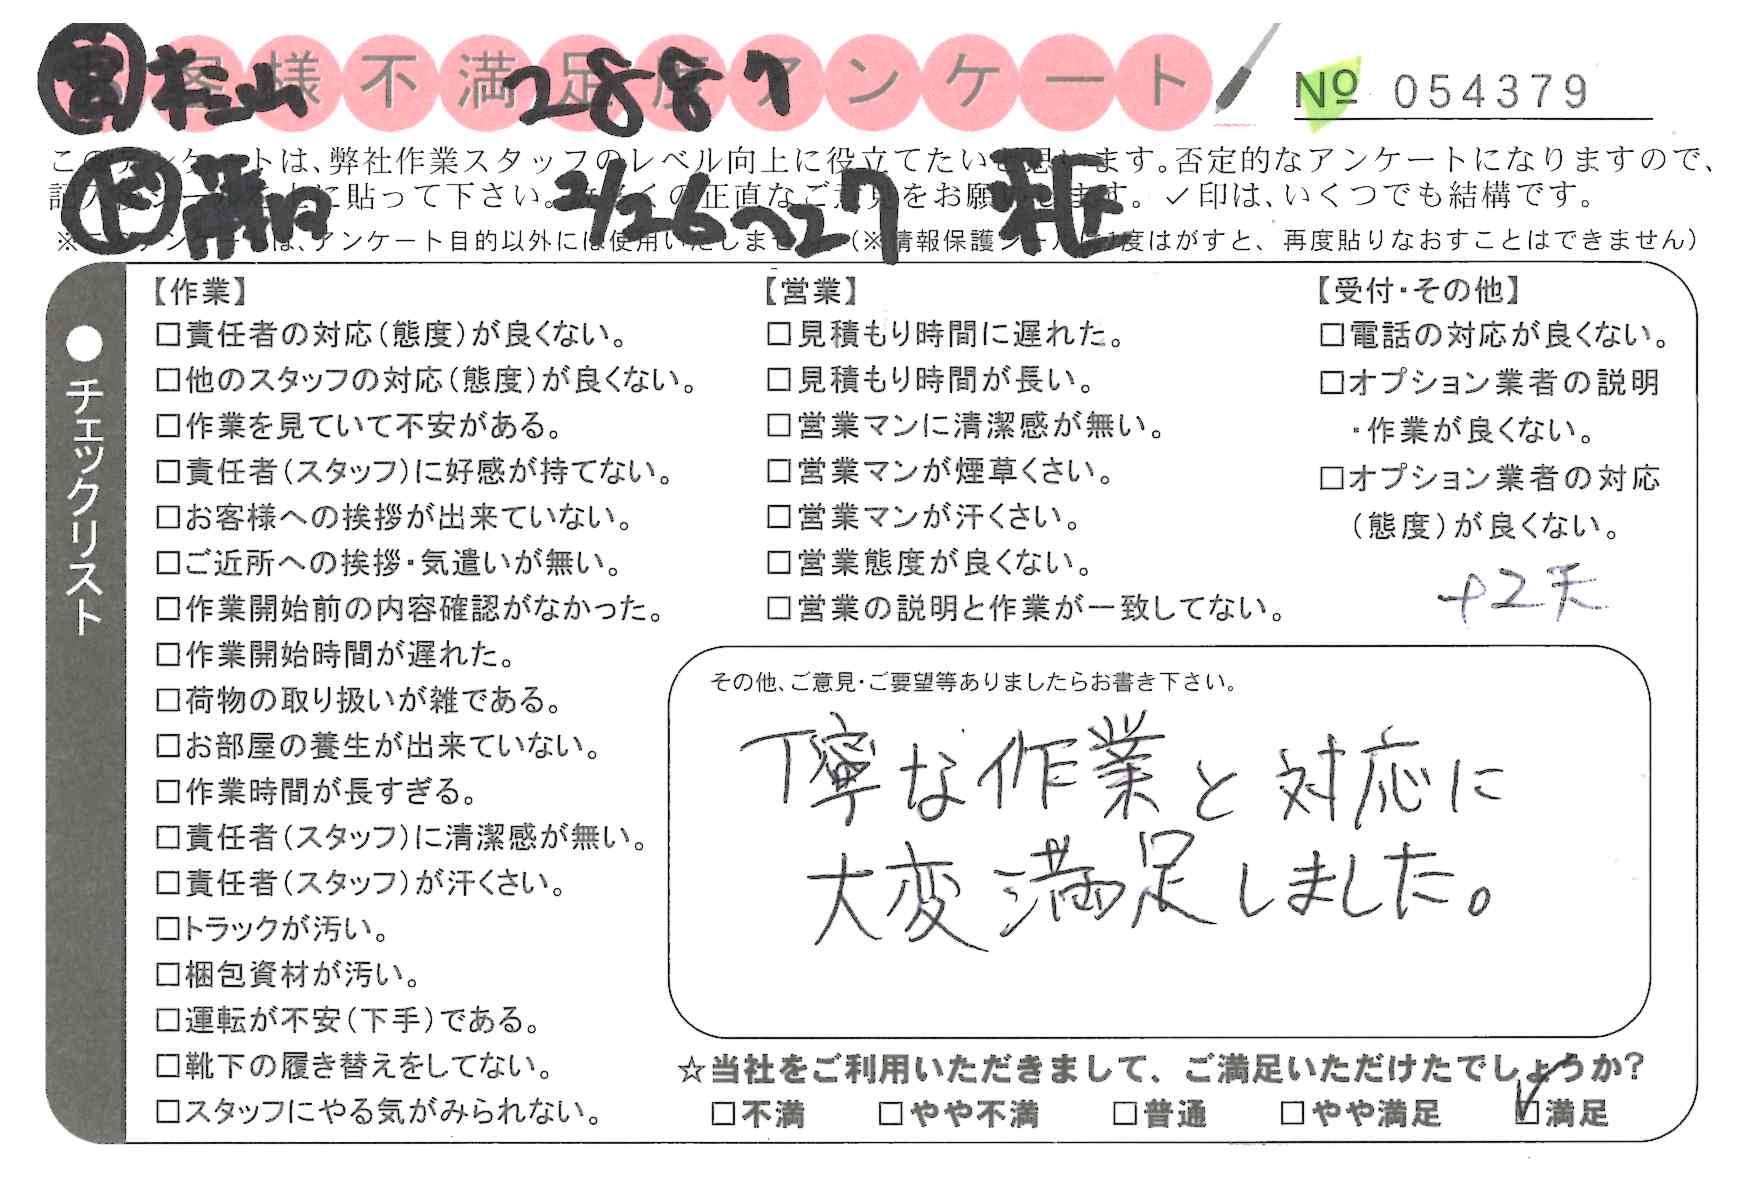 お客様不満足度アンケート
営 杉山 2887
No 054379
このアンケートは、弊社作業スタッフのレベル向上に役立てたいと思います。否定的なアンケートになりますので、
に貼って下さい。 の正直なご意見をお願いします。✓印は、いくつでも結構です。
2/26〜27
※ アンケートは、アンケート目的以外には使用いたしません。(※情報保護シールは1度はがすと、再度貼りなおすことはできません)
●チェックリスト
【作業】
□責任者の対応(態度)が良くない。
□他のスタッフの対応(態度)が良くない。
□作業を見ていて不安がある。
□責任者(スタッフ)に好感が持てない。
□お客様への挨拶が出来ていない。
□ご近所への挨拶・気遣いが無い。
□作業開始前の内容確認がなかった。
□作業開始時間が遅れた。
□荷物の取り扱いが雑である。
□お部屋の養生が出来ていない。
□作業時間が長すぎる。
□責任者(スタッフ)に清潔感が無い。
□責任者(スタッフ)が汗くさい。
□トラックが汚い。
□梱包資材が汚い。
□運転が不安(下手)である。
□靴下の履き替えをしてない。
□スタッフにやる気がみられない。
【営業】
□見積もり時間に遅れた。
□見積もり時間が長い。
□営業マンに清潔感が無い。
□営業マンが煙草くさい。
□営業マンが汗くさい。
□営業態度が良くない。
□営業の説明と作業が一致してない。
【受付・その他】
□電話の対応が良くない。
□オプション業者の説明
・作業が良くない。
□オプション業者の対応
(態度)が良くない。
+2天
その他、ご意見・ご要望等ありましたらお書き下さい。
丁寧な作業と対応に
大変満足しました。
☆当社をご利用いただきまして、ご満足いただけたでしょうか?
□不満 □やや不満 □普通 □やや満足 ☑満足